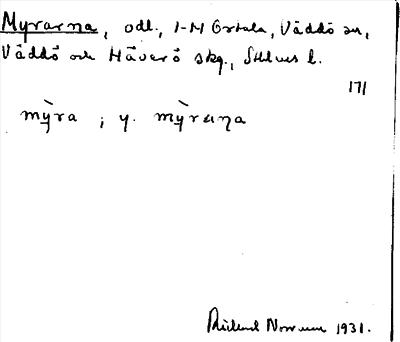 Myrarna, odl., 1-M Ortala, Väddö sn,
Väddö och Häverö skg., Sthlms l.
171
mỳra ; y. mỳraɳa
Rickard Norrman 1931.